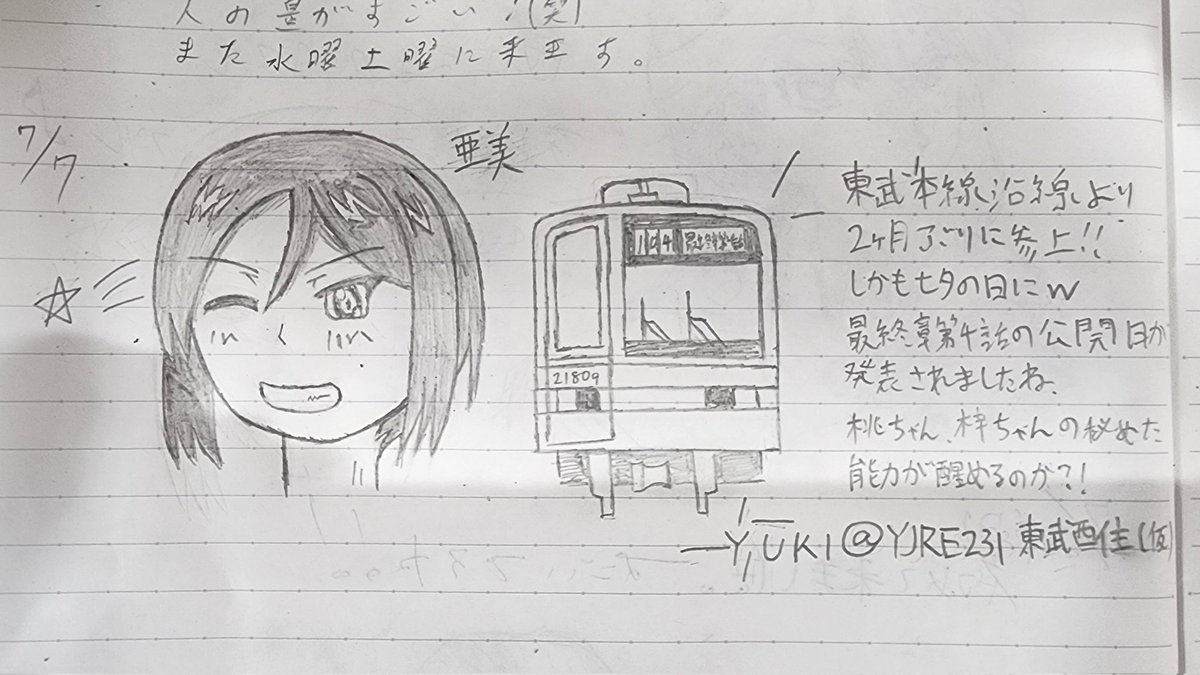 人の量がすごい!(笑)
また水曜土曜に来ます。
7/7
亜美
194 最終第4話
21809
東武本線沿線より
2ヶ月ぶりに参上!!
しかも七夕の日にw
最終章第4話の公開日が
発表されましたね。
桃ちゃん、梓ちゃんの秘めた
能力が醒めるのか?!
YUKI@YJRE231 東武西住(仮)